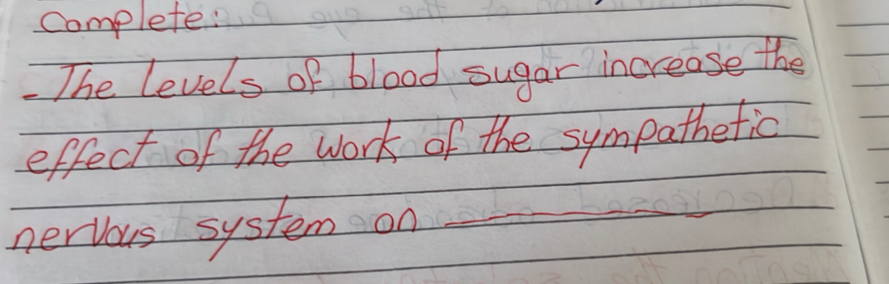 Complete:
- The levels of blood sugar increase the
effect of the work of the sympathetic
nervous system on